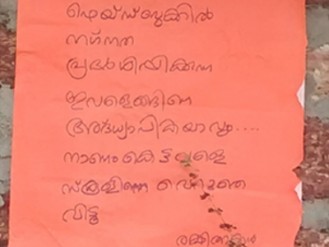 ഫെയ്സ്ബുക്കിൽ
നഗ്നത
പ്രദർശിപ്പിക്കുന്ന
ഇവളെങ്ങിനെ
അദ്ധ്യാപികയാവും....
നാണം കെട്ടവളെ
സ്കൂളിൽ നിന്നു
വിടൂ
രക്ഷിതാക്കൾ